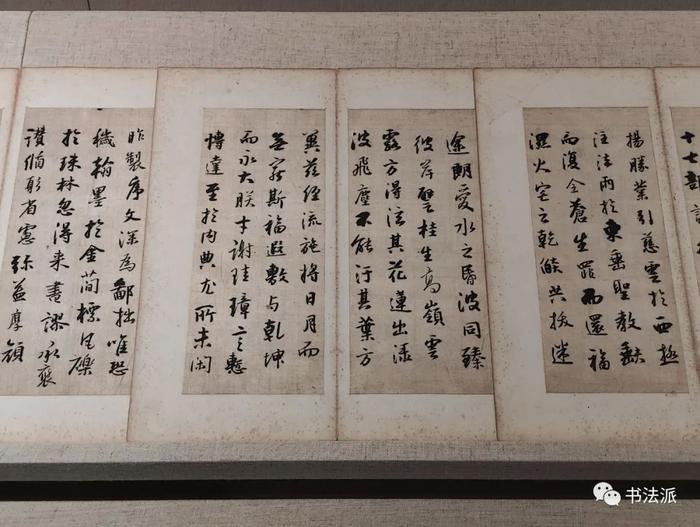 十七部
揚勝業引慈雲於西極
注法雨於東垂聖教缺
而復全蒼生罪而還福
濕火宅之乾燄共拔迷
途朗愛水之昏波同臻
彼岸譬桂生高嶺雲
露方得泫其花蓮出淥
波飛塵不能汙其葉方
冀茲經流施將日月而
無窮斯福遐敷与乾坤
而永大朕才謝珪璋言慙
博達至於內典尤所未閑
昨製序文深為鄙拙唯恐
穢翰墨於金簡標瓦礫
於珠林忽得來書謬承褒
讚循躬省慮弥益厚顏
书法派